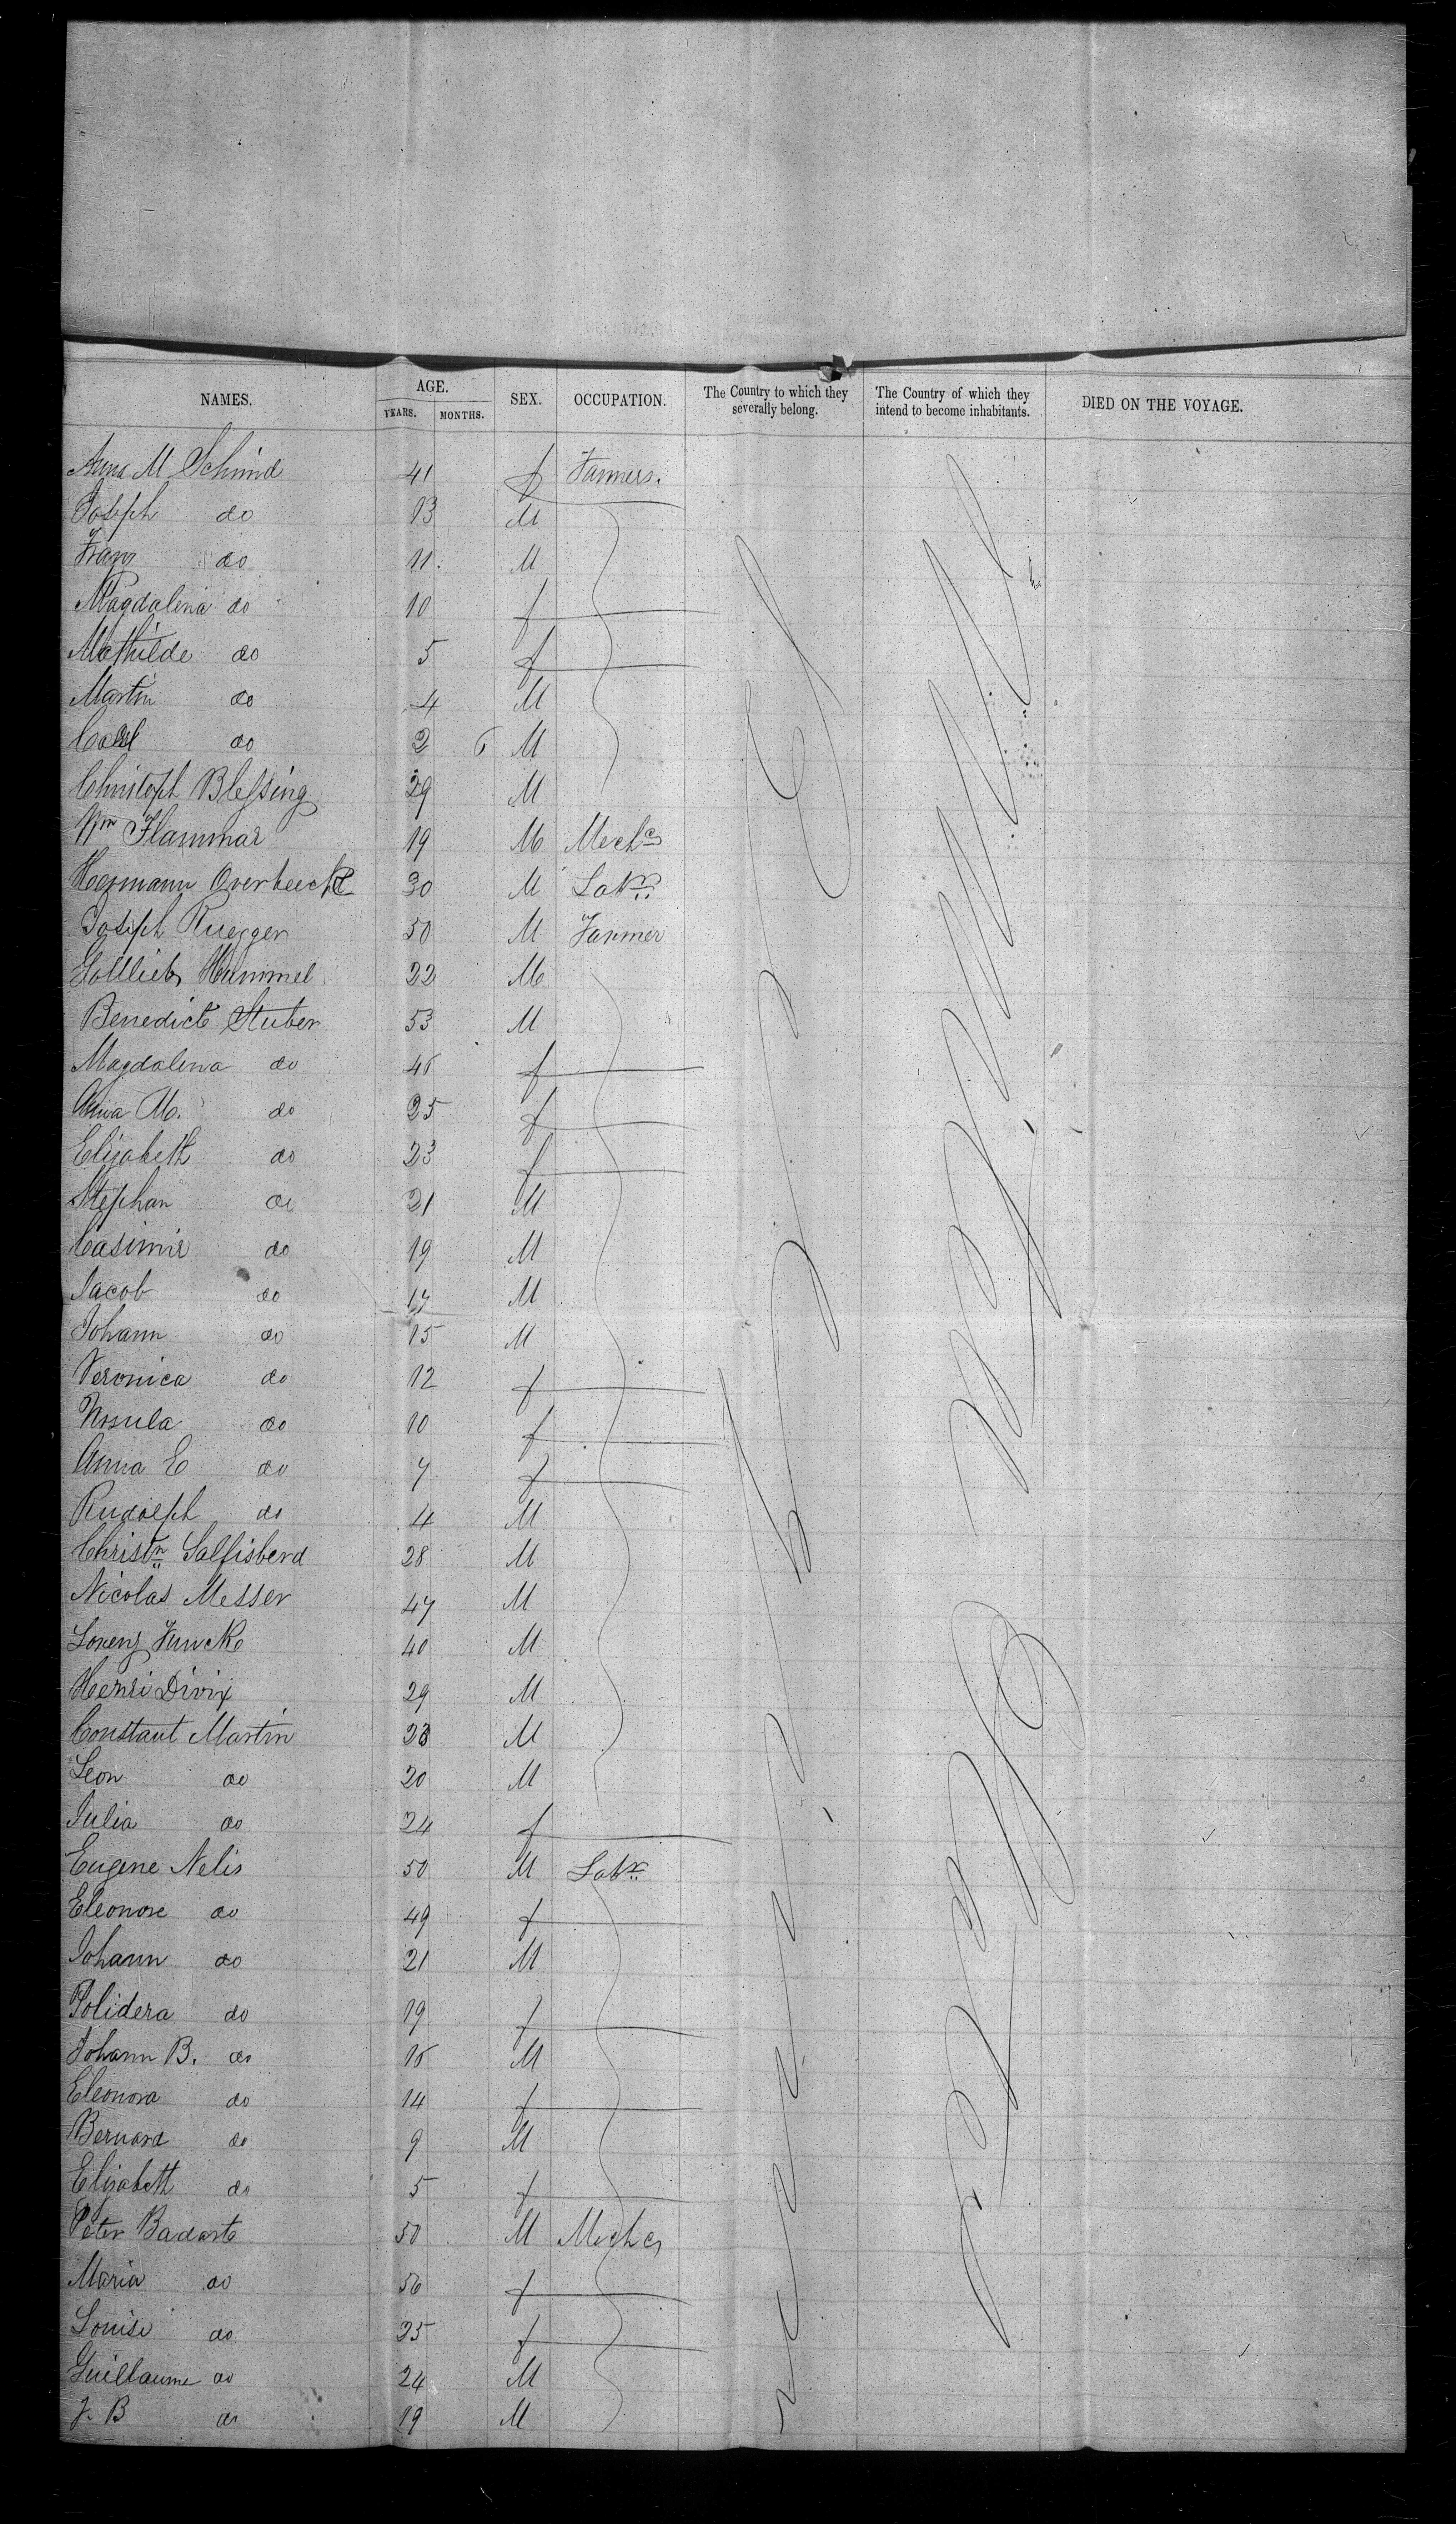 NAMES. AGE. SEX. OCCUPATION. The Country to which they severally belong. The Country of which they intend to become inhabitants. DIED ON THE VOYAGE.
YEARS. MONTHS.
Anna M Schmid 41 f Farmers.
Joseph do 13 M
Franz do 11. M
Magdalena do 10 f
Mathilde do 5 f
Martin do 4 M
Carl do 2 6 M
Christoph Blessing 29 M
Wm Flammar 19 M Mechcs
Hermann Overbeeck 30 M Labr
Joseph Ruegger 50 M Farmer
Gottlieb Hummel 22 M
Benedict Stuber 53 M
Magdalena do f
Anna M. do 25 f
Elizabeth do 23 f
Stephan do 21 M
Casimir do 19 M
Jacob do 17 M
Johann do 15 M
Veronica do 12 f
Ursula do 10 f
Anna E do 7 f
Rudolph do 4 M
Christn Salfisberd 28 M
Nicolas Messer 47 M
Lorenz Funcke 40 M
Henri Divix 29 M
Constant Martin M
Leon do 20 M
Julia do 24 f
Eugene Nelis 50 M Labr
Eleonore do 49 f
Johann do 21 M
Polidera do 19 f
Johann B. do M
Eleonora do 14 f
Bernard do 9 M
Elisabeth do 5 f
Peter Badarts 50 M Mechcs
Maria do 56 f
Louise do 25 f
Guillaume do 24 M
J. B do 19 M